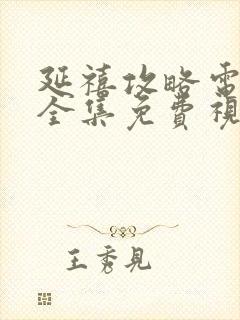 延禧攻略電
全集免費視
王秀見